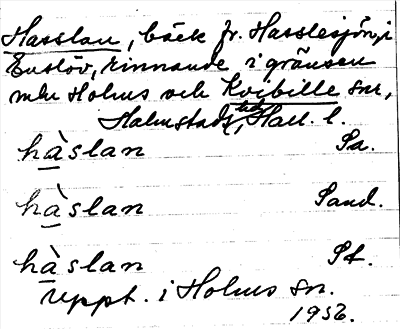 Hasslan, bäck fr. Hasslesjön, i
Enslöv, rinnande i gränsen
mln Holms och Kvibille snr,
Halmstads hd, Hall. l.
hàslan Pa.
hàslan Pand.
hàslan Pt.
Uppt. i Holms sn.
1952.